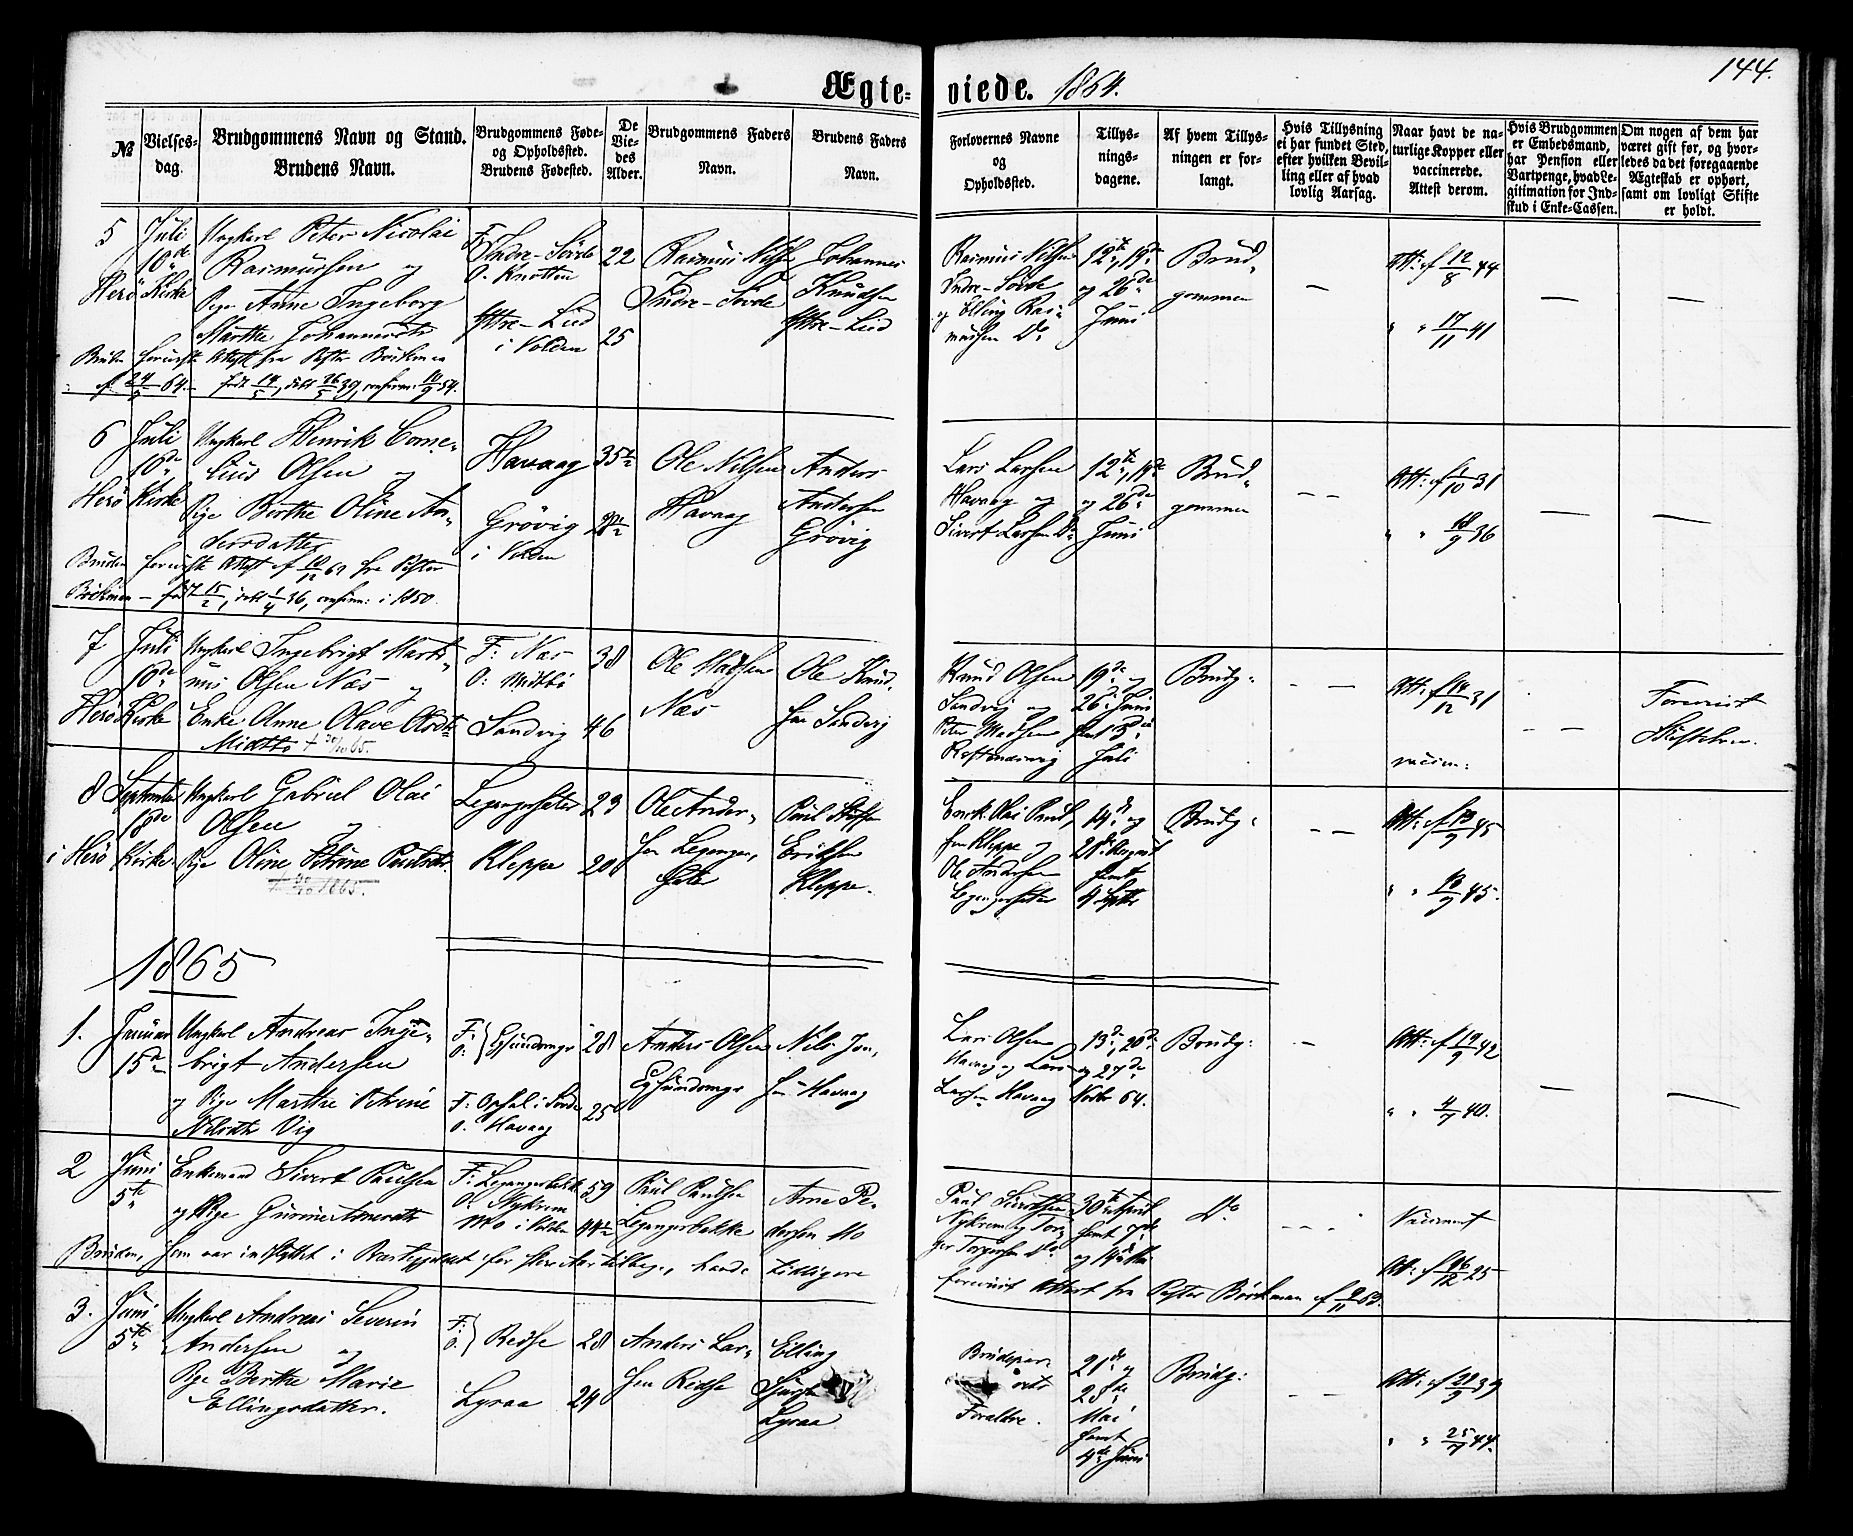 144.
Ægte- viede. 1864.
№
Vielses-
dag.
Brudgommens Navn og Stand.
Brudens Navn.
Brudgommens Føde-
og Opholdssted.
Brudens Fødested.
De
Vie-
des
Alder.
Brudgommens Faders
Navn.
Brudens Faders
Navn.
Forlovernes Navne
og
Opholdssted.
Tillys-
nings-
dagene.
Af hvem Tillys-
ningen er for-
langt.
Hvis Tillysning
ei har fundet Sted,
efter hvilken Bevil-
ling eller af hvad
lovlig Aarsag.
Naar havt de na-
turlige Kopper eller
vaccinerede.
Attest derom.
Hvis Brudgommen
er Embedsmand,
har Pension eller
Vartpenge, hvad Le-
gitimation for Ind-
skud i Enke-Cassen.
Om nogen af dem har
været gift før, og hvor-
ledes da det foregaaende
Ægteskab er ophørt,
samt om lovligt Skifte
er holdt.
5
Juli
10de
Herö Kirke
Ungkarl Peter Nicolai
Rasmussen og
Pige Anne Ingeborg
Marthe Johannesdtr
F. Indre-Sövde
O. Knotten
Yttre-Lid
i Volden
22
25
Rasmus Nilss.
Indre-Sövde
Johannes
Knudsen
Yttre-Lid
Rasmus Nilsen
Indre-Sövde
og Elling Ras-
mussen Do
12te, 19de
og 26de
Juni
Brud-
gommen
Att: af 12/8 44
" " 17/11 41
Bruden foreviste Attest fra Pastor Böckman
af 64. född 14/5, döbt 26/5 39, confirm: 10/9 54.
6
Juli
10de
Herö Kirke
Ungkarl Henrik Corne-
lius Olsen og
Pige Berthe Oline An-
dersdatter
Havaag
Grövig
i Volden
35
28
Ole Nilsen
Havaag
Anders
Andersen
Grövig
Lars Larsen
Havaag og
Sivert Larsen Do
12te, 19de
og 26de
Juni
Brud-
gommen
Att: af 1/10 31
" " 18/9 36
Bruden foreviste Attest af fra Pastor
Böckman – född 15/2, döbt 1/4 36, confirm: i 1850.
7
Juli
10de
Herö Kirke
Ungkarl Ingebrigt Marti-
nus Olsen Næs og
Enke Anne Olave Olsdtr
Midtbö
F: Næs
O: Midtbö
Sandvig
38
46
Ole Madsen
Næs
Ole Knud-
sen Sandvig
Knud Olsen
Sandvig og
Peter Madsen
19de og
26de Juni
samt 3de
Juli
Brudg:
Att: af 14/12 31
vaccin:
Forevist
Skiftebrev.
8
September
18de
i Herö Kirke
Ungkarl Gabriel Olai
Olsen og
Pige Oline Petrine Paulsdtr.
Legangersæter
Kleppe
23
20
Ole Ander-
sen Leganger-
sæter
Paul
Eriksen
Kleppe.
Enok Olai Paul-
sen Kleppe og
Ole Andersen
Legangersæter
14de og
21de August
samt
4 Septbr
Brudg:
Att: af 13/9 45
" " 45.
1865
1.
Januar
15de
Ungkarl Andreas Inge-
brigt Andersen
og Pige Marthe Petrine
Nilsdtr Vig
F:
O: } Egsundvaag
F: Opsal i Sövde
O. Havaag
28
25
Anders Olsen
Egsundvaag
Nils Jon-
sen Havaag
Lars Olsen
Havaag og Lars
Larsen Havaag
13de, 20de
og 27de
Novbr 64.
Brudg:
Att: af 19/9 42
" " 4/7 40.
2
Juni
5te
Enkemand Sivert Paulsen
og Pige Gurine Arnesdtr
F: Legangerbakke
O. Myklrem
Mo i Volden
59
44
Paul Paulsen
Legangerbakke
Arne Pe-
dersen Mo
Paul Sivertsen
30te April
samt 7de
Do
Vaccineret
Att: af 16/12 25
Bruden, som var indflyttet i Præstegjeldet for flere Aar tilbage, havde tidligere
forevist Attest fra Pastor Böckman af 9/11 53.
3.
Juni
5te
Ungkarl Andreas Severin
Andersen og
Pige Berthe Marie
Ellingsdatter.
F:
O. } Redse
Lyraa
28
24
Anders Lar-
sen Redse
Elling
Lyraa
Brudepar-
rets
Forældre.
21de og
25de
Mai
samt
4de Juni
Brudg:
Att: af 39
" " 25/7 44.